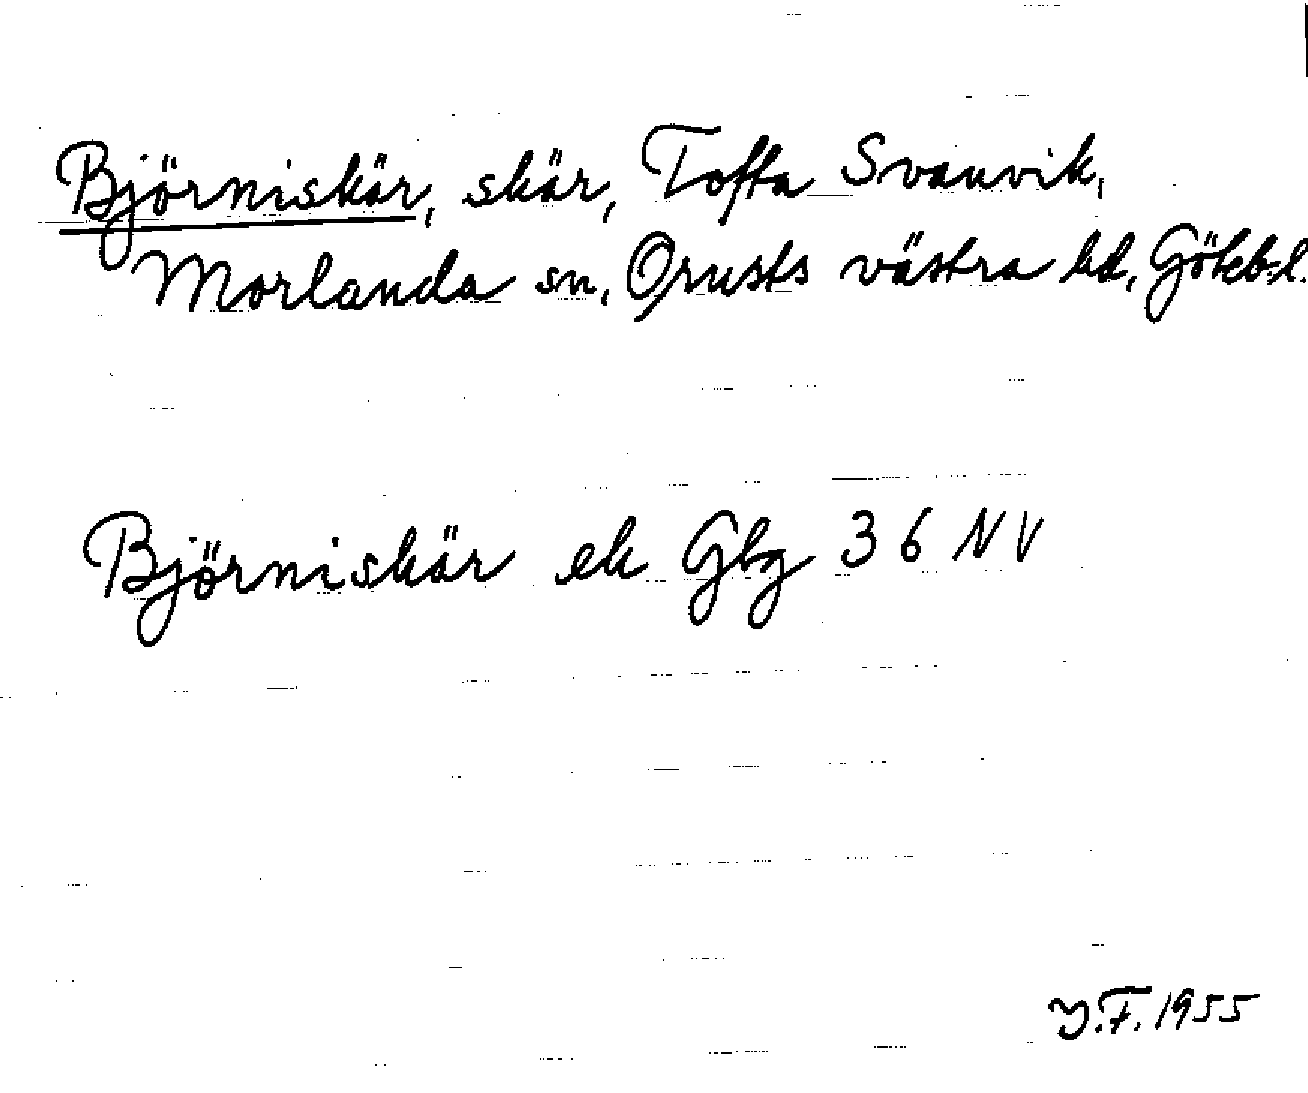 Björniskär, skär, Tofta Svanvik,
Morlanda sn, Orusts västra hd, Götebl.
Björniskär ek Gbg 36 NV
Y.F. 1955